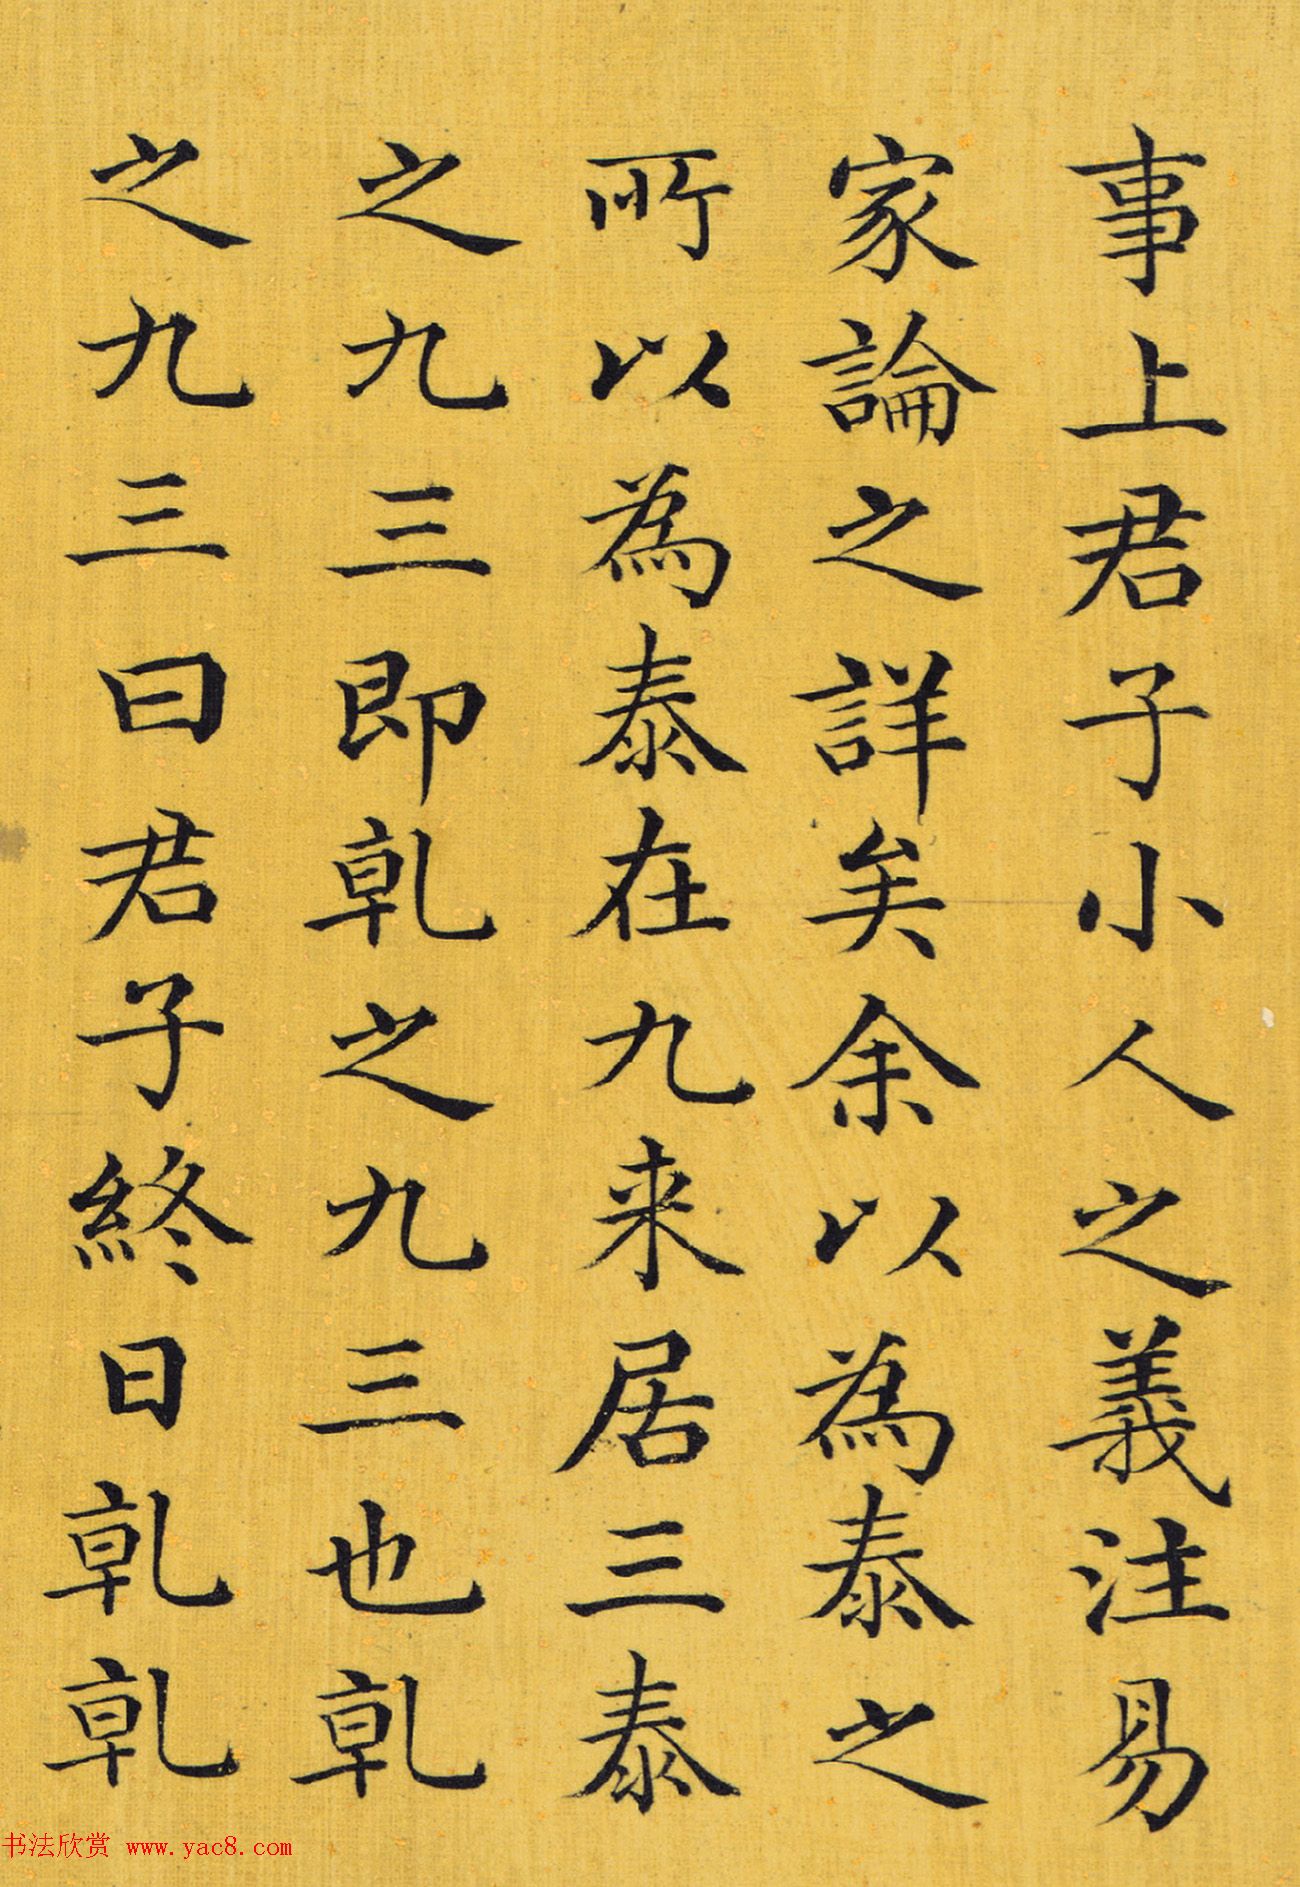 事上君子小人之義注易
家論之詳矣余以為泰之
所以為泰在九来居三泰
之九三即乹之九三也乹
之九三曰君子終日乹乹
书法欣赏 www.yac8.com